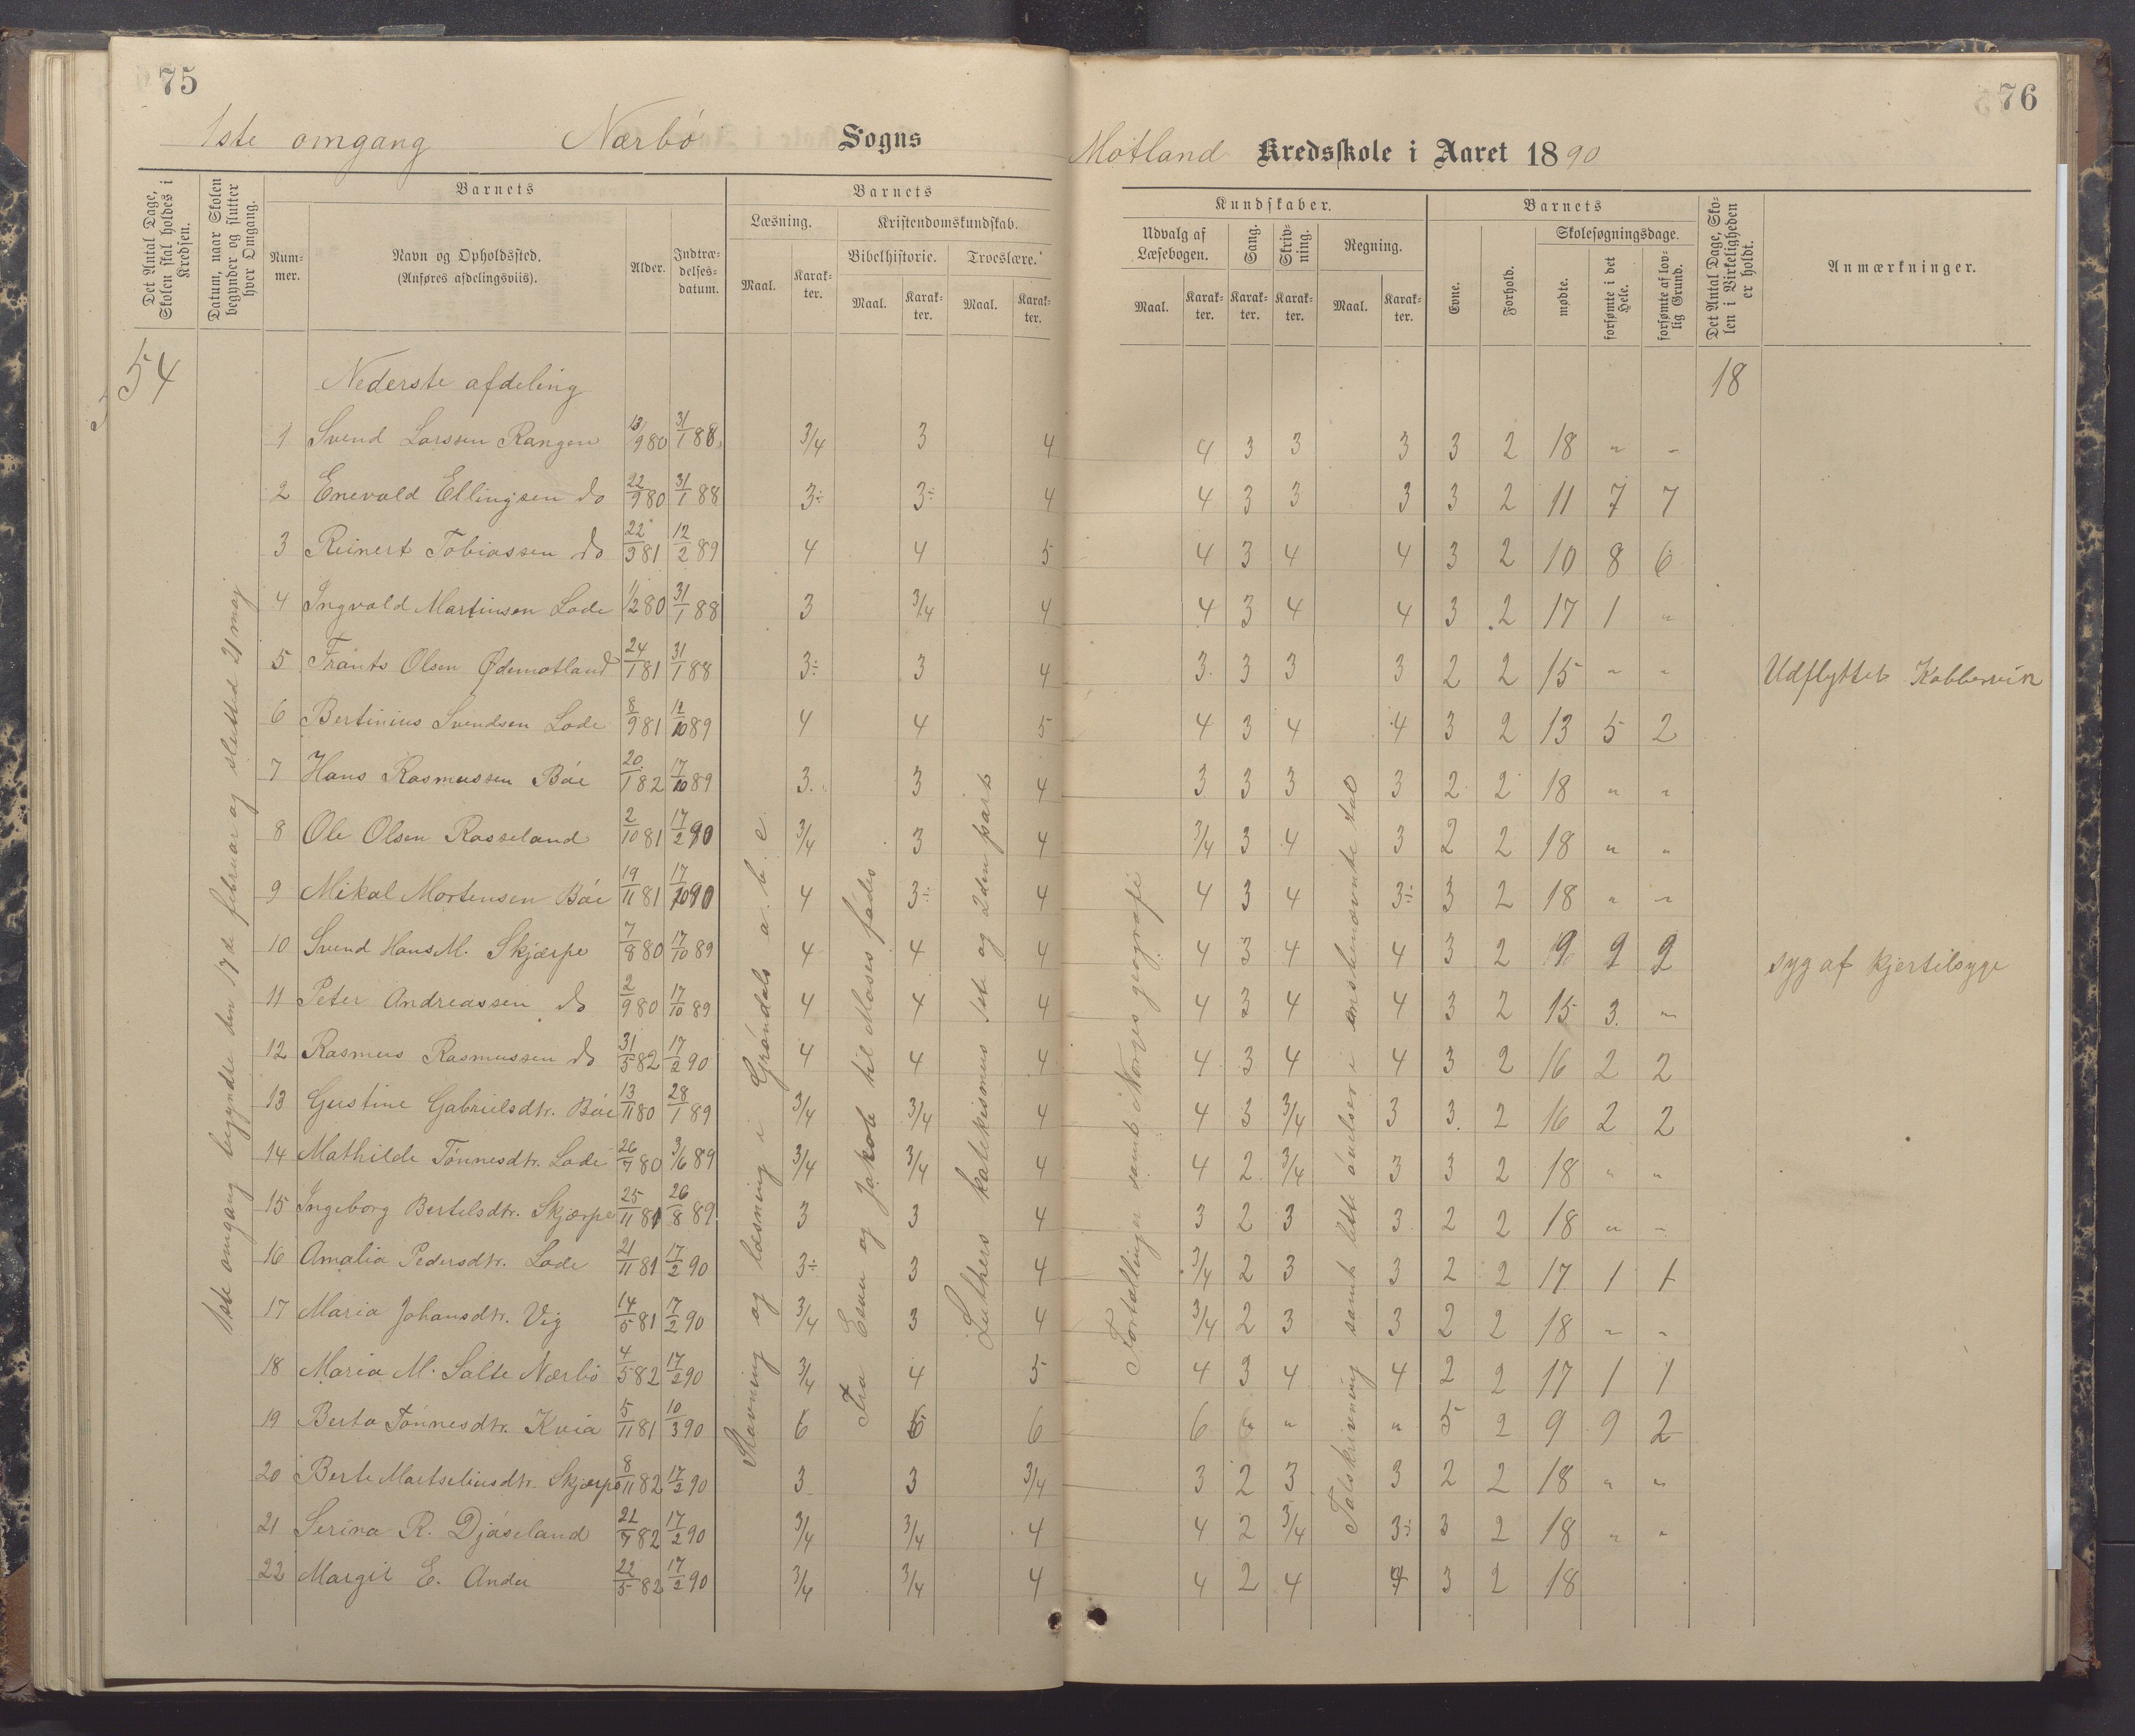 75
76
1ste omgang Nærbö Sogns
Motland Kredsskole i Aaret 1890
Det Antal Dage, Skolen skal holdes i Kredsen.
Datum, naar Skolen begynder og slutter hver Omgang.
Barnets
Nummer.
Navn og Opholdssted.
(Anføres afdelingsviis).
Alder.
Indtrædelses-datum.
Barnets
Læsning.
Kristendomskundskab.
Bibelhistorie. Troeslære.
Maal. Karakter. Maal. Karakter. Maal. Karakter.
Kundskaber.
Udvalg af Læsebogen. Sang. Skrivning. Regning.
Maal. Karakter. Karakter. Karakter. Maal. Karakter.
Barnets
Evne. Forhold.
Skolesøgningsdage.
mødte. forsømte i det Hele. forsømte af lovlig Grund.
Det Antal Dage, Skolen i Virkeligheden er holdt.
Anmærkninger.
54
Nederste afdeling
18
1ste omgang begyndte den 17de februar og slutted 21 maj
Stavning og læsning i Gröndals a. b. c.
Fra Esau og Jakob til Moses födes
Luthers katekismus 1ste og 2den part
Fortællinger samt Norges geografi
Talskrivning samt lette övelser i ensbenævnte tal
1 Svend Larssen Rangen 13/9 80 31/1 88 3/4 3 4 4 3 3 3 3 2 18 " "
2 Enevald Ellingsen do 22/9 80 31/1 88 3÷ 3÷ 4 4 3 3 3 3 2 11 7 7
3 Reinert Tobiassen do 22/3 81 12/2 89 4 4 5 4 3 4 4 3 2 10 8 6
4 Ingvald Martinsen Lode 1/2 80 31/1 88 3 3/4 4 4 3 4 4 3 2 17 1 "
5 Frants Olsen Ødemotland 24/1 81 31/1 88 3÷ 3 4 3 3 3 3 2 2 15 " " Udflyttet Kobbervik
6 Bertinius Svendsen Lode 8/9 81 /10 89 4 4 5 4 3 4 4 3 2 13 5 2
7 Hans Rasmussen Böe 20/1 82 17/10 89 3 3 4 3 3 3 3 2 2 18 " "
8 Ole Olsen Rosseland 2/10 81 17/2 90 3/4 3 4 3/4 3 4 3 2 2 18 " "
9 Mikal Mortensen Böe 19/11 81 17/10 90 4 3÷ 4 4 3 4 3÷ 3 2 18 " "
10 Svend Hans M. Skjærpe 7/8 80 17/10 89 4 4 4 4 3 4 4 3 2 9 9 9 syg af kjertelsyge
11 Peter Andreassen do 2/9 80 17/10 89 4 4 4 4 3 4 4 3 2 15 3 "
12 Rasmus Rasmussen do 31/5 82 17/2 90 4 4 4 4 3 4 4 3 2 16 2 2
13 Gustine Gabrielsdtr. Böe 13/11 80 28/1 89 3/4 3/4 4 4 3 3/4 3 3 2 16 2 2
14 Mathilde Tönnesdtr. Lode 26/7 80 3/6 89 3/4 3/4 4 4 2 3/4 3 3 2 18 " "
15 Ingeborg Bertelsdtr. Skjærpe 25/11 81 26/8 89 3 3 4 3 2 3 3 2 2 18 " "
16 Amalia Pedersdtr. Lode 21/11 81 17/2 90 3÷ 3 4 3/4 2 3 3 2 2 17 1 1
17 Maria Johansdtr. Vig 14/5 81 17/2 90 3/4 3 4 3/4 2 3 3 2 2 18 " "
18 Maria M. Salte Nærbö 4/5 82 17/2 90 3/4 4 5 4 3 4 4 2 2 17 1 1
19 Berta Tönnesdtr. Kvia 5/11 81 10/3 90 6 6 6 6 " " " 5 2 9 9 2
20 Berte Martseliusdtr. Skjærpe 8/11 82 17/2 90 3 3 3/4 3 2 3 3 2 2 18 " "
21 Serina R. Djöseland 21/7 82 17/2 90 3/4 3/4 4 4 2 3/4 3÷ 3 2 18 " "
22 Margit E. Anda 22/5 82 17/2 90 3/4 3/4 4 4 2 4 4 3 2 18